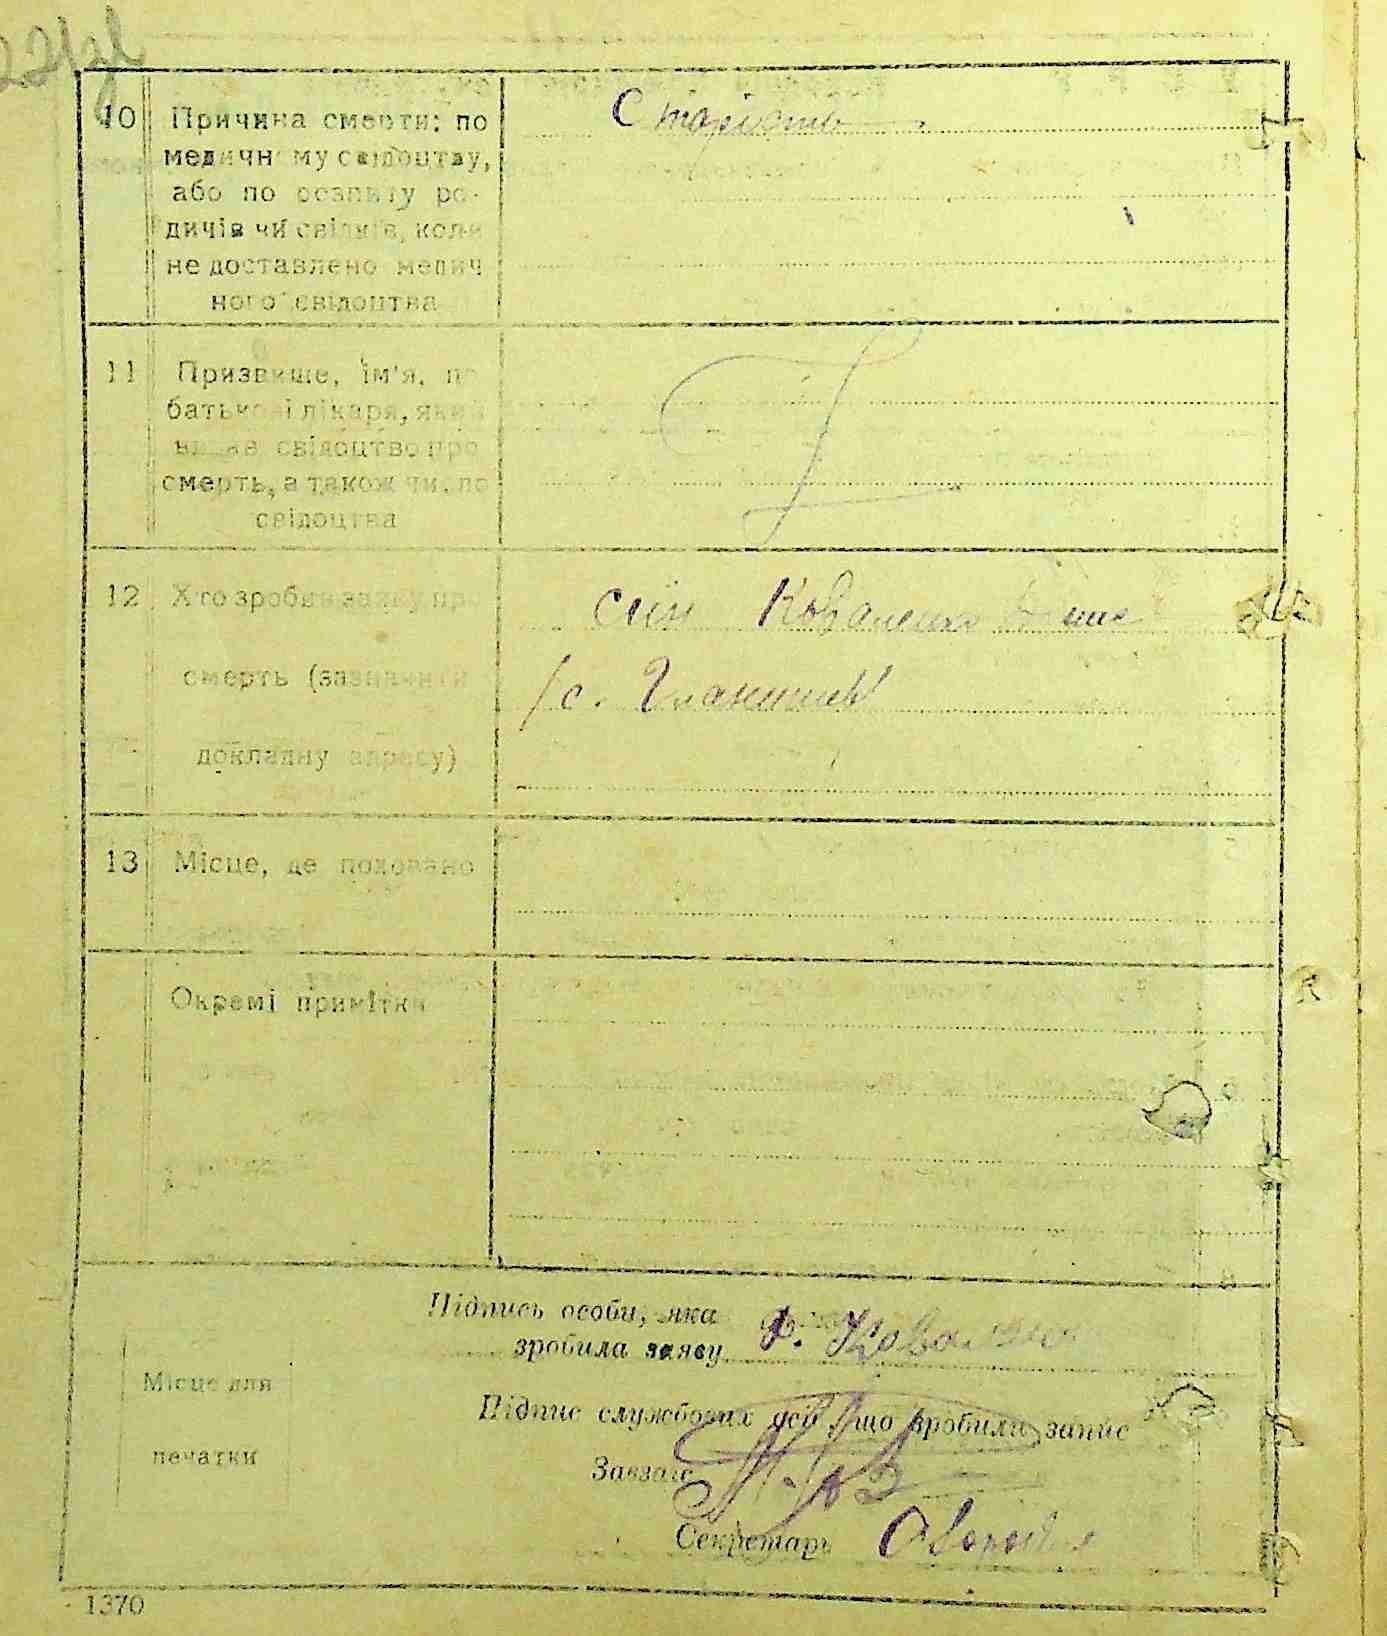 22/зв
10 Причина смерти: по Старість
медичному свідоцтву,
або по розпиту ро-
дичів чи свідків, коли
не доставлено медич
ного свідоцтва
11 Призвище, ім'я, по
батькові лікаря, який
видав свідоцтво про
смерть, а також чи. по
свідоцтва
12 Хто зробив заяву про син Коваленко
смерть (зазначити /с.
докладну адресу)
13 Місце, де поховано
Окремі примітки
Підпись особи, яка
зробила заяву Ф. Коваленко
Місце для
Підпис службових осіб, що зробили запис
печатки
Завзагс
Секретарь
1370